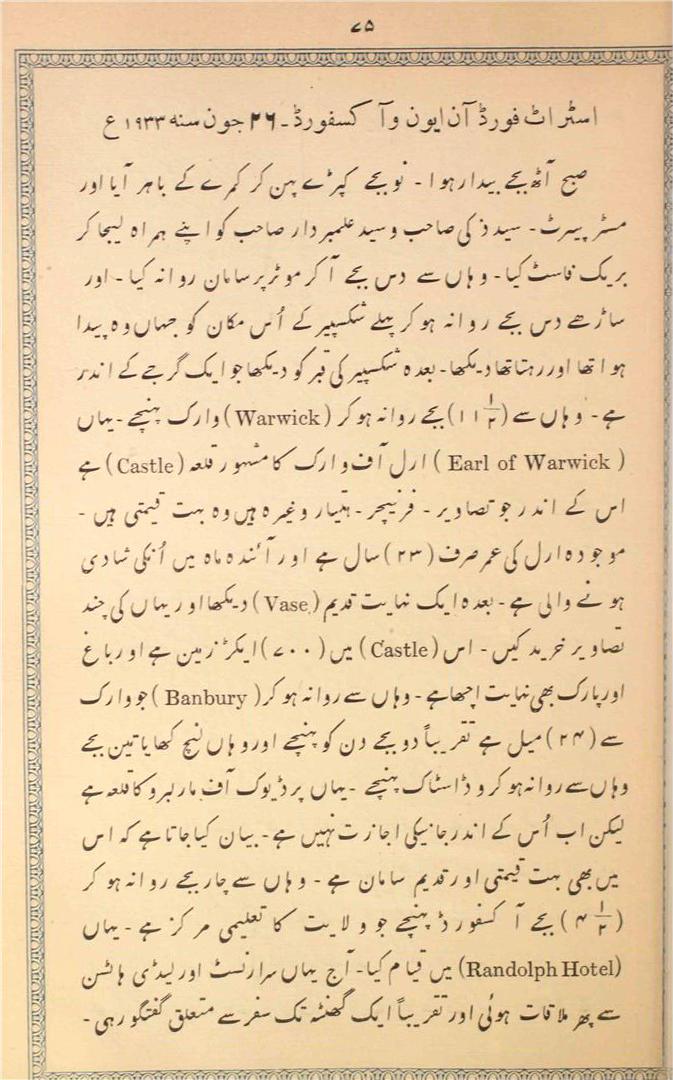 ۷۵
اسٹراٹ فورڈ آن ایون و آکسفورڈ ۔ ۲۶ جون سنہ ۱۹۳۳ ع
صبح آٹھ بجے بیدار ہوا ۔ نو بجے کپڑے پہن کر کمرے کے باہر آیا اور
مسٹر پیرٹ ۔ سید ذکی صاحب و سید علمبردار صاحب کو اپنے ہمراہ لیجا کر
بریک فاسٹ کیا ۔ وہاں سے دس بجے آ کر موٹر پر سامان روانہ کیا ۔ اور
ساڑھے دس بجے روانہ ہو کر پہلے شکسپیر کے اُس مکان کو جہاں وہ پیدا
ہوا تھا اور رہتا تھا دیکھا ۔ بعدہ شکسپیر کی قبر کو دیکھا جو ایک گرجے کے اندر
ہے ۔ وہاں سے (۱۱ ۱/۲) بجے روانہ ہو کر (Warwick) وارک پہنچے ۔ یہاں
(Earl of Warwick) ارل آف وارک کا مشہور قلعہ (Castle) ہے
اس کے اندر جو تصاویر ۔ فرنیچر ۔ ہتیار وغیرہ ہیں وہ بہت قیمتی ہیں ۔
موجودہ ارل کی عمر صرف (۲۳) سال ہے اور آئندہ ماہ میں اُنکی شادی
ہونے والی ہے ۔ بعدہ ایک نہایت قدیم (Vase) دیکھا اور یہاں کی چند
تصاویر خرید کیں ۔ اس (Castle) میں (۷۰۰) ایکڑ زمین ہے اور باغ
اور پارک بھی نہایت اچھا ہے ۔ وہاں سے روانہ ہو کر (Banbury) جو وارک
سے (۲۴) میل ہے تقریباً دو بجے دن کو پہنچے اور وہاں لنچ کھایا تین بجے
وہاں سے روانہ ہو کر وڈاسٹاک پہنچے ۔ یہاں پر ڈیوک آف مارلبرو کا قلعہ ہے
لیکن اب اُس کے اندر جانیکی اجازت نہیں ہے ۔ بیان کیا جاتا ہے کہ اس
میں بھی بہت قیمتی اور قدیم سامان ہے ۔ وہاں سے چار بجے روانہ ہو کر
(۴ ۱/۲) بجے آکسفورڈ پہنچے جو ولایت کا تعلیمی مرکز ہے ۔ یہاں
(Randolph Hotel) میں قیام کیا ۔ آج یہاں سر ارنسٹ اور لیڈی ہاٹسن
سے پھر ملاقات ہوئی اور تقریباً ایک گھنٹہ تک سفر سے متعلق گفتگو رہی ۔